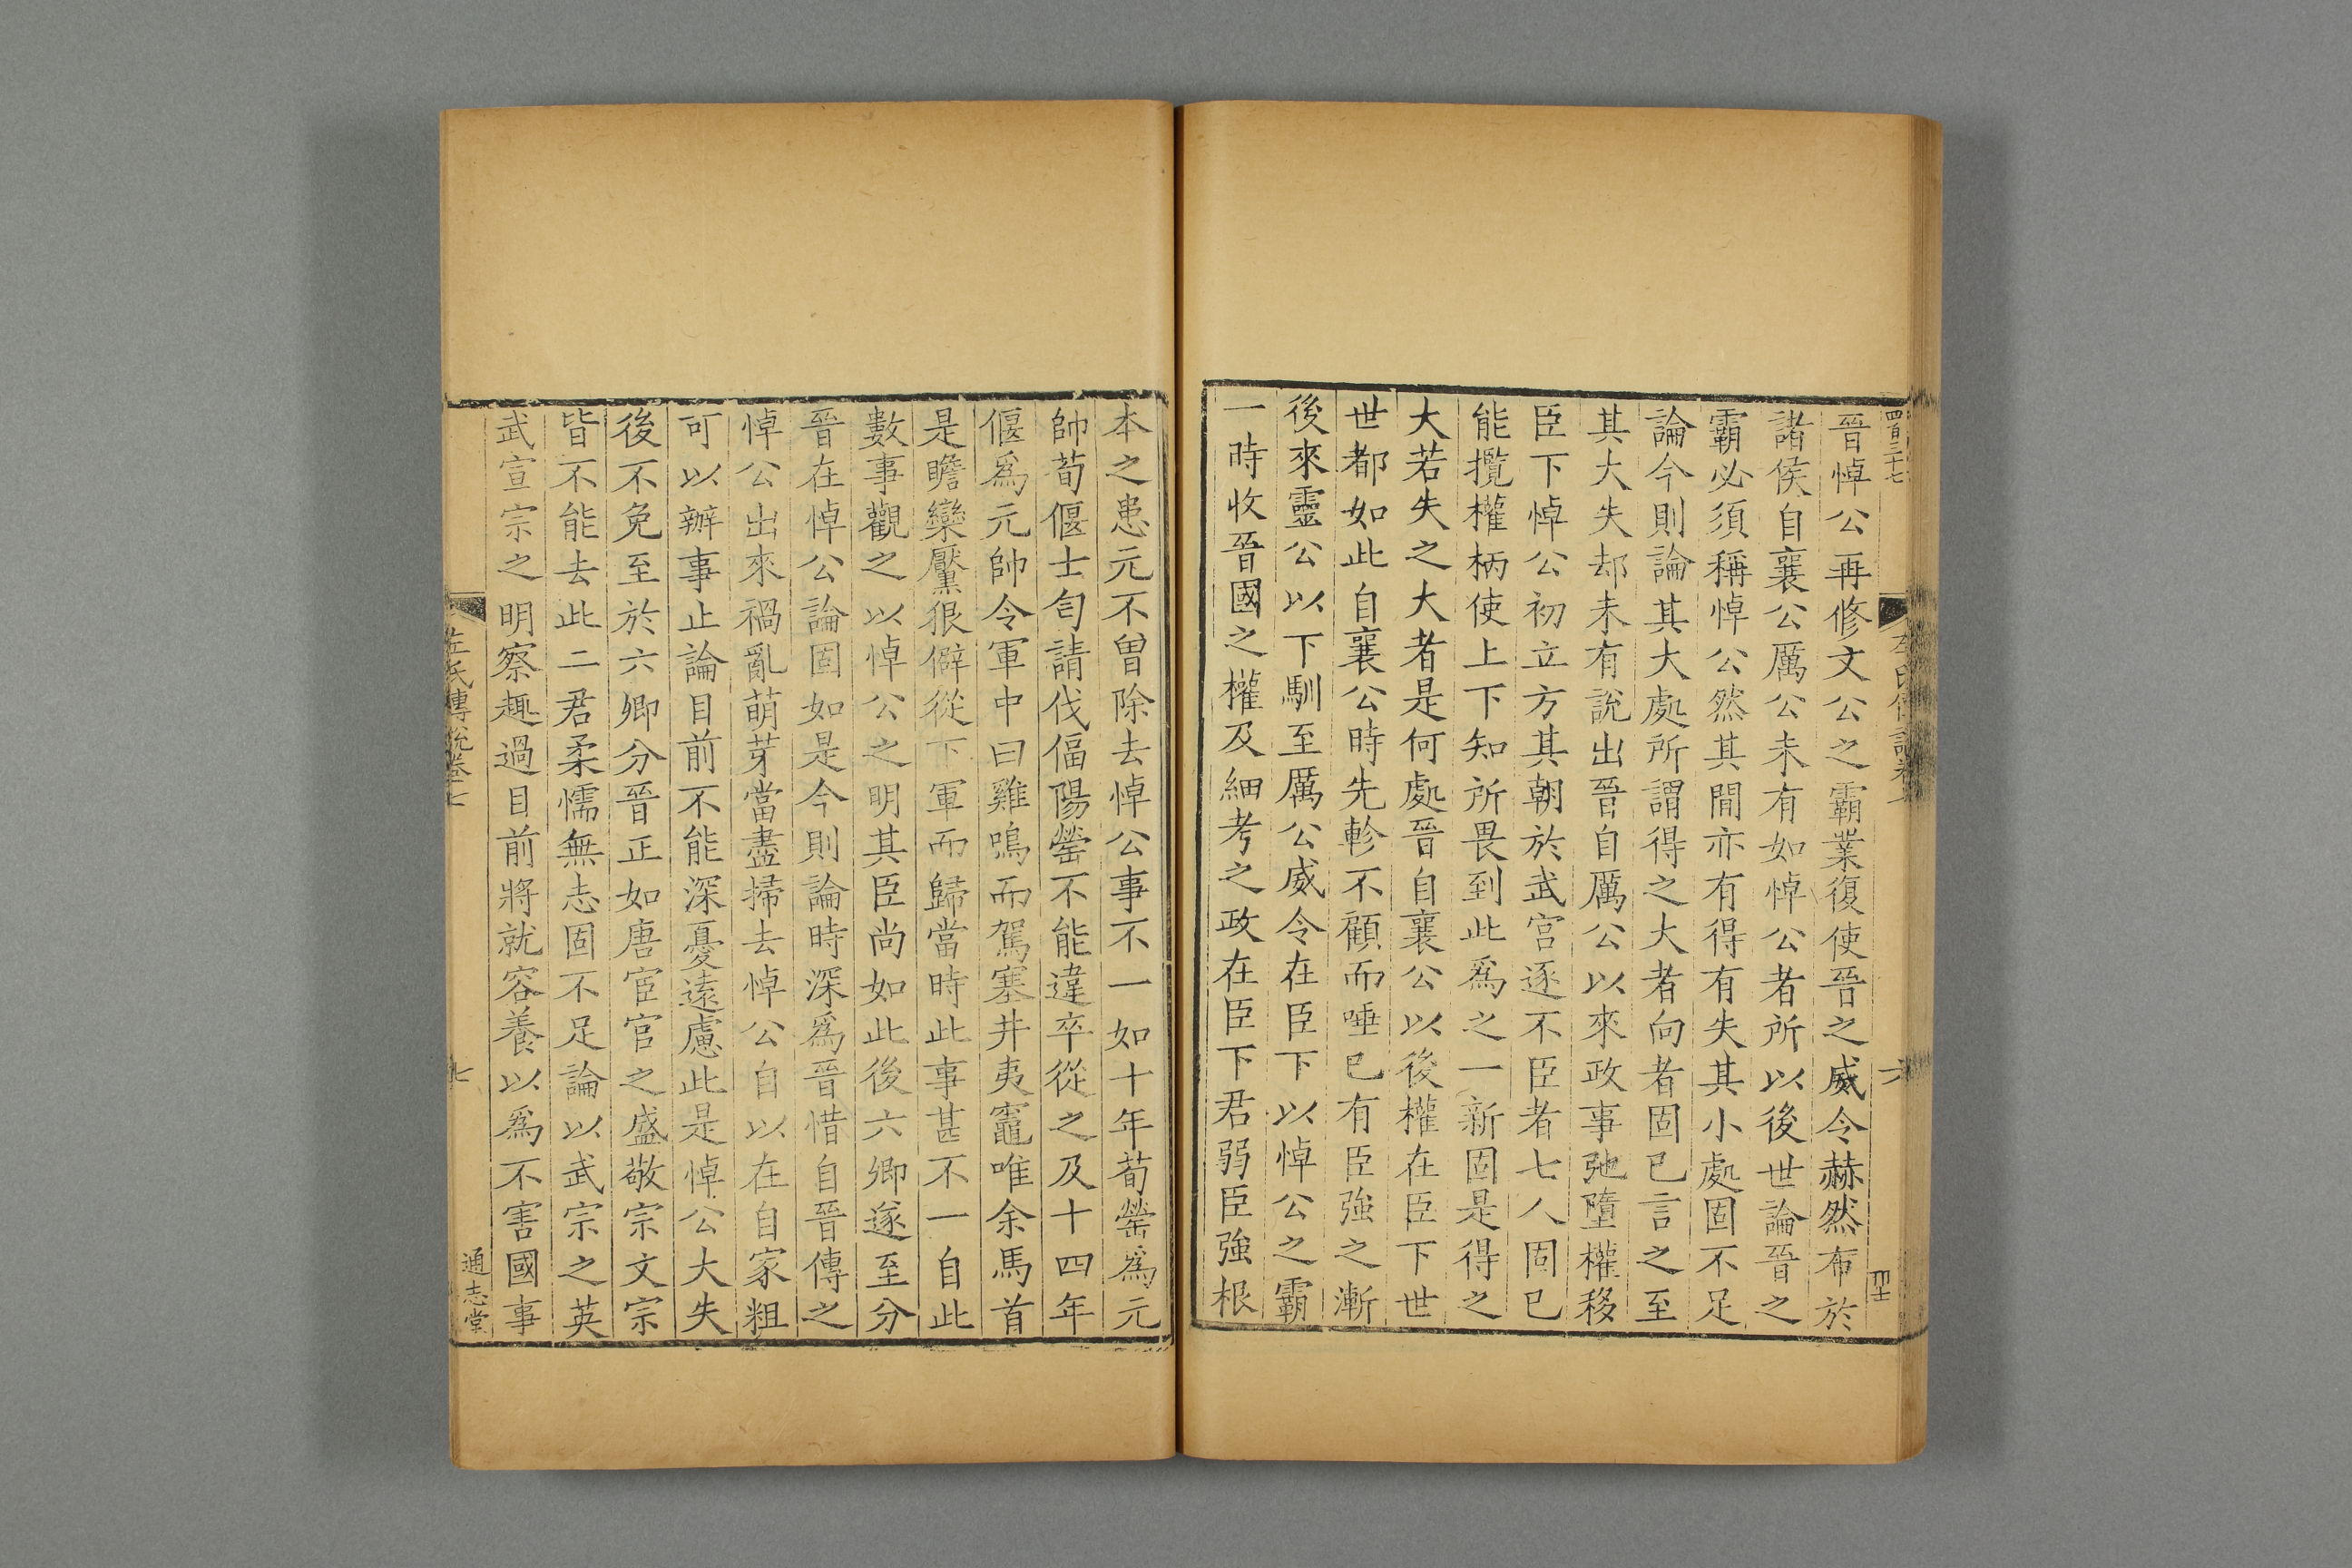 四百二十七
晉悼公再修文公之霸業復使晉之威令赫然布於
諸侯自襄公厲公未有如悼公者所以後世論晉之
霸必須稱悼公然其間亦有得有失其小處固不足
論今則論其大處所謂得之大者向者固已言之至
其大失却未有說出晉自厲公以來政事弛墮權移
臣下悼公初立方其朝於武宮逐不臣者七人固已
能攬權柄使上下知所畏到此爲之一新固是得之
大若失之大者是何處晉自襄公以後權在臣下世
世都如此自襄公時先軫不顧而唾已有臣強之漸
後來靈公以下馴至厲公威令在臣下以悼公之霸
一時收晉國之權及細考之政在臣下君弱臣強根
本之患元不曾除去悼公事不一如十年荀罃爲元
帥荀偃士匄請伐偪陽罃不能違卒從之及十四年
偃爲元帥令軍中曰雞鳴而駕塞井夷竈唯余馬首
是瞻欒黶狠僻從下軍而歸當時此事甚不一自此
數事觀之以悼公之明其臣尚如此後六卿遂至分
晉在悼公論固如是今則論時深爲晉惜自晉傳之
悼公出來禍亂萌芽當盡掃去悼公自以在自家粗
可以辦事止論目前不能深憂遠慮此是悼公大失
後不免至於六卿分晉正如唐宦官之盛敬宗文宗
皆不能去此二君柔懦無志固不足論以武宗之英
武宣宗之明察趣過目前將就容養以爲不害國事
左氏傳說卷七
七
通志堂